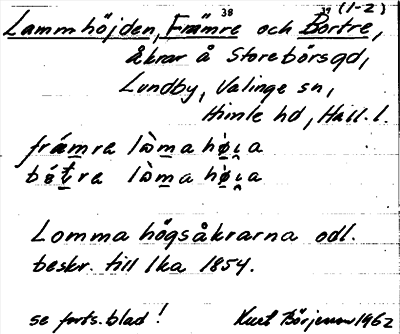 38 39 (1-2)
Lammhöjden, Främre och Bortre,
åkrar å Storebörsgd,
Lundby, Valinge sn,
Himle hd, Hall. l.
främre lòma hǿı̣a
bǿtre lòma hǿı̣a
Lomma högsåkrarna odl.
beskr. till lka 1854.
se forts. blad!
Kurt Börjesson 1962